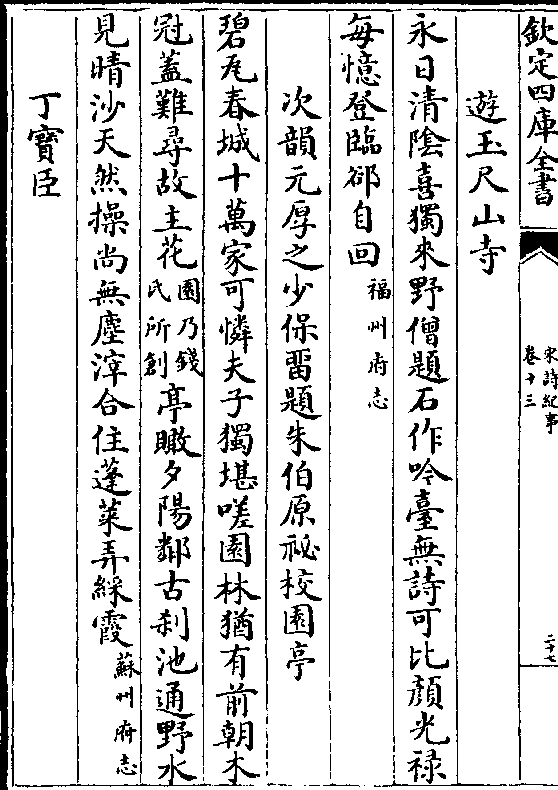 欽定四庫全書
宋詩紀事
卷十三
二十七
遊玉尺山寺
永日清陰喜獨來野僧題石作吟臺無詩可比顏光禄
每憶登臨郤自回福州府志
次韻元厚之少保留題朱伯原祕校園亭
碧瓦春城十萬家可憐夫子獨堪嗟園林猶有前朝木
冠蓋難尋故主花園乃錢氏所創亭瞰夕陽鄰古刹池通野水
見晴沙天然操尚無塵滓合住蓬萊弄綵霞蘇州府志
丁寶臣